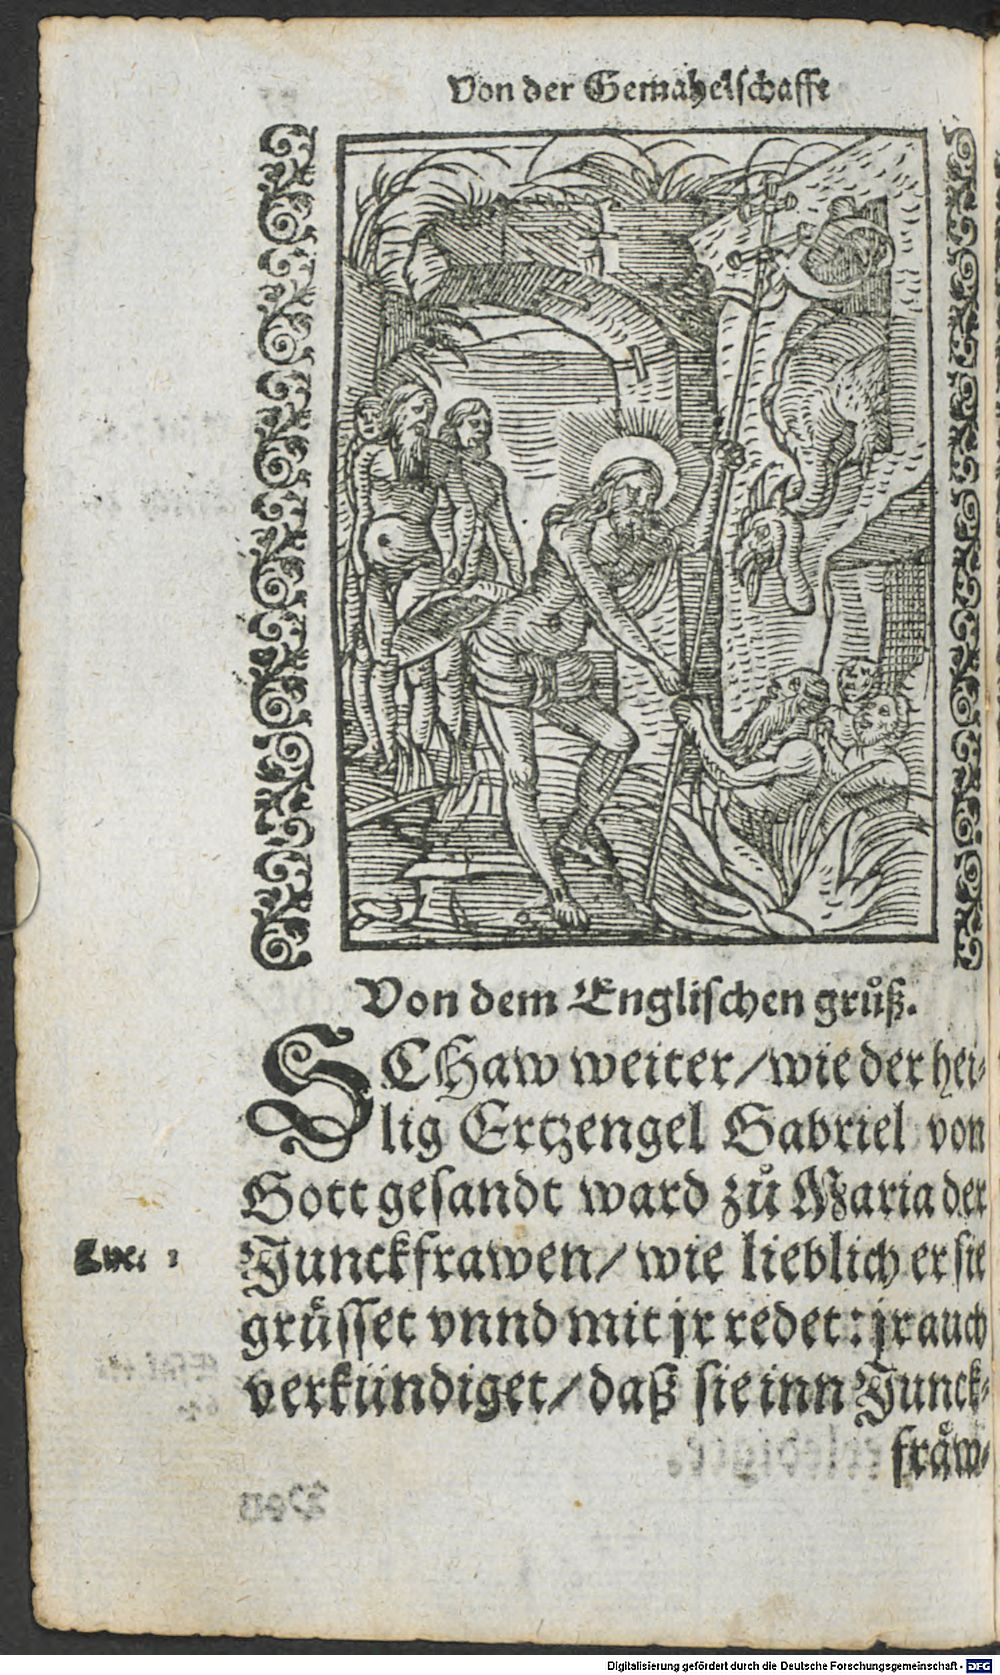 Von der Gemahelschafft
Von dem Englischen gruͦß.
SCHaw weiter / wie der hei⸗
lig Ertzengel Gabriel von
Gott gesandt ward zuͦ Maria der
Luc. 1
Junckfrawen / wie lieblich er sie
gruͤsset vnnd mit jr redet : jr auch
verkündiget / daß sie inn Junck⸗
fraͤw⸗
Digitalisierung gefördert durch die Deutsche Forschungsgemeinschaft - DFG